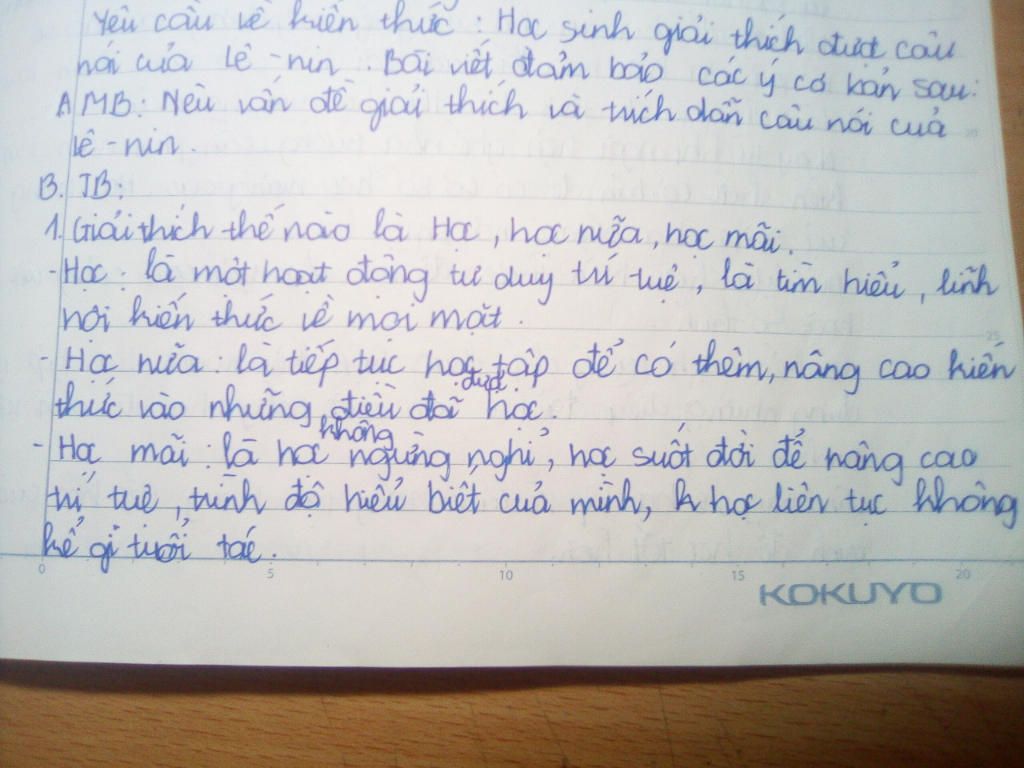 Yêu cầu về kiến thức : Học sinh giải thích được câu
nói của Lê-nin. Bài viết đảm bảo các ý cơ bản sau:
A. MB: Nêu vấn đề giải thích và trích dẫn câu nói của
Lê-nin.
B. TB:
1. Giải thích thế nào là Học, học nữa, học mãi.
- Học: là một hoạt động tư duy trí tuệ, là tìm hiểu, lĩnh
hội kiến thức về mọi mặt.
- Học nữa: là tiếp tục học tập để có thêm, nâng cao kiến
thức vào những điều đã được học.
- Học mãi: là học không ngừng nghỉ, học suốt đời để nâng cao
trí tuệ, trình độ hiểu biết của mình, học liên tục không
kể gì tuổi tác.
0 5 10 15 20
KOKUYO